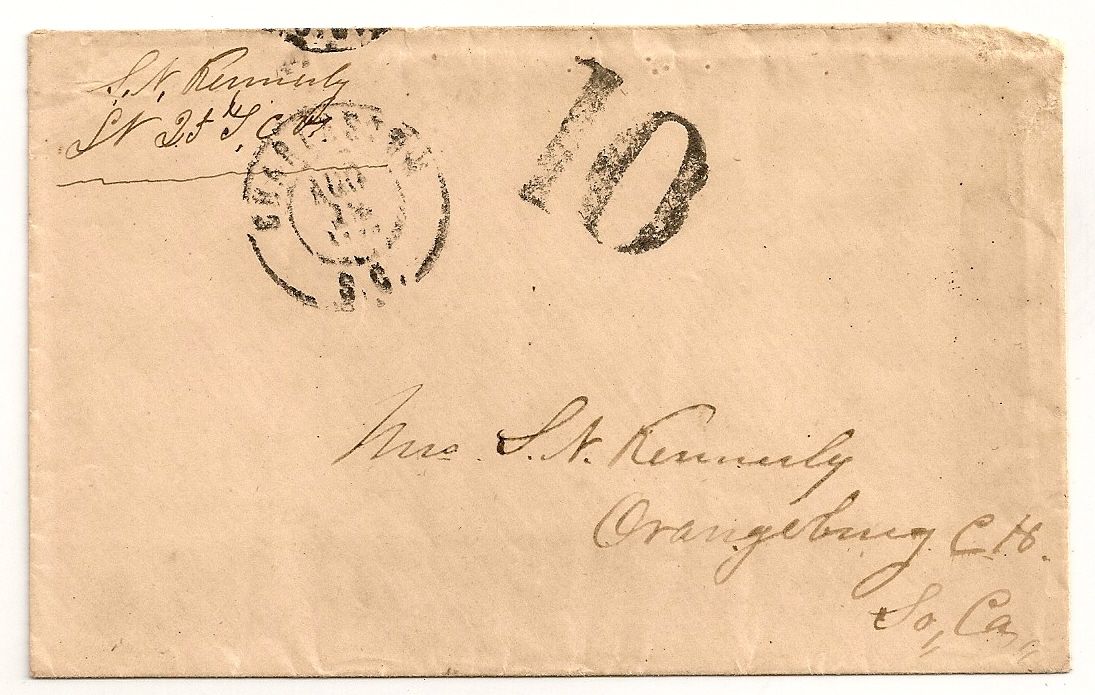 S. N. Kennerly
25th S, C V,
CHARLESTON
AUG
S. C.
10
Mrs. S. N. Kennerly
Orangeburg C H.
So,, Ca,,